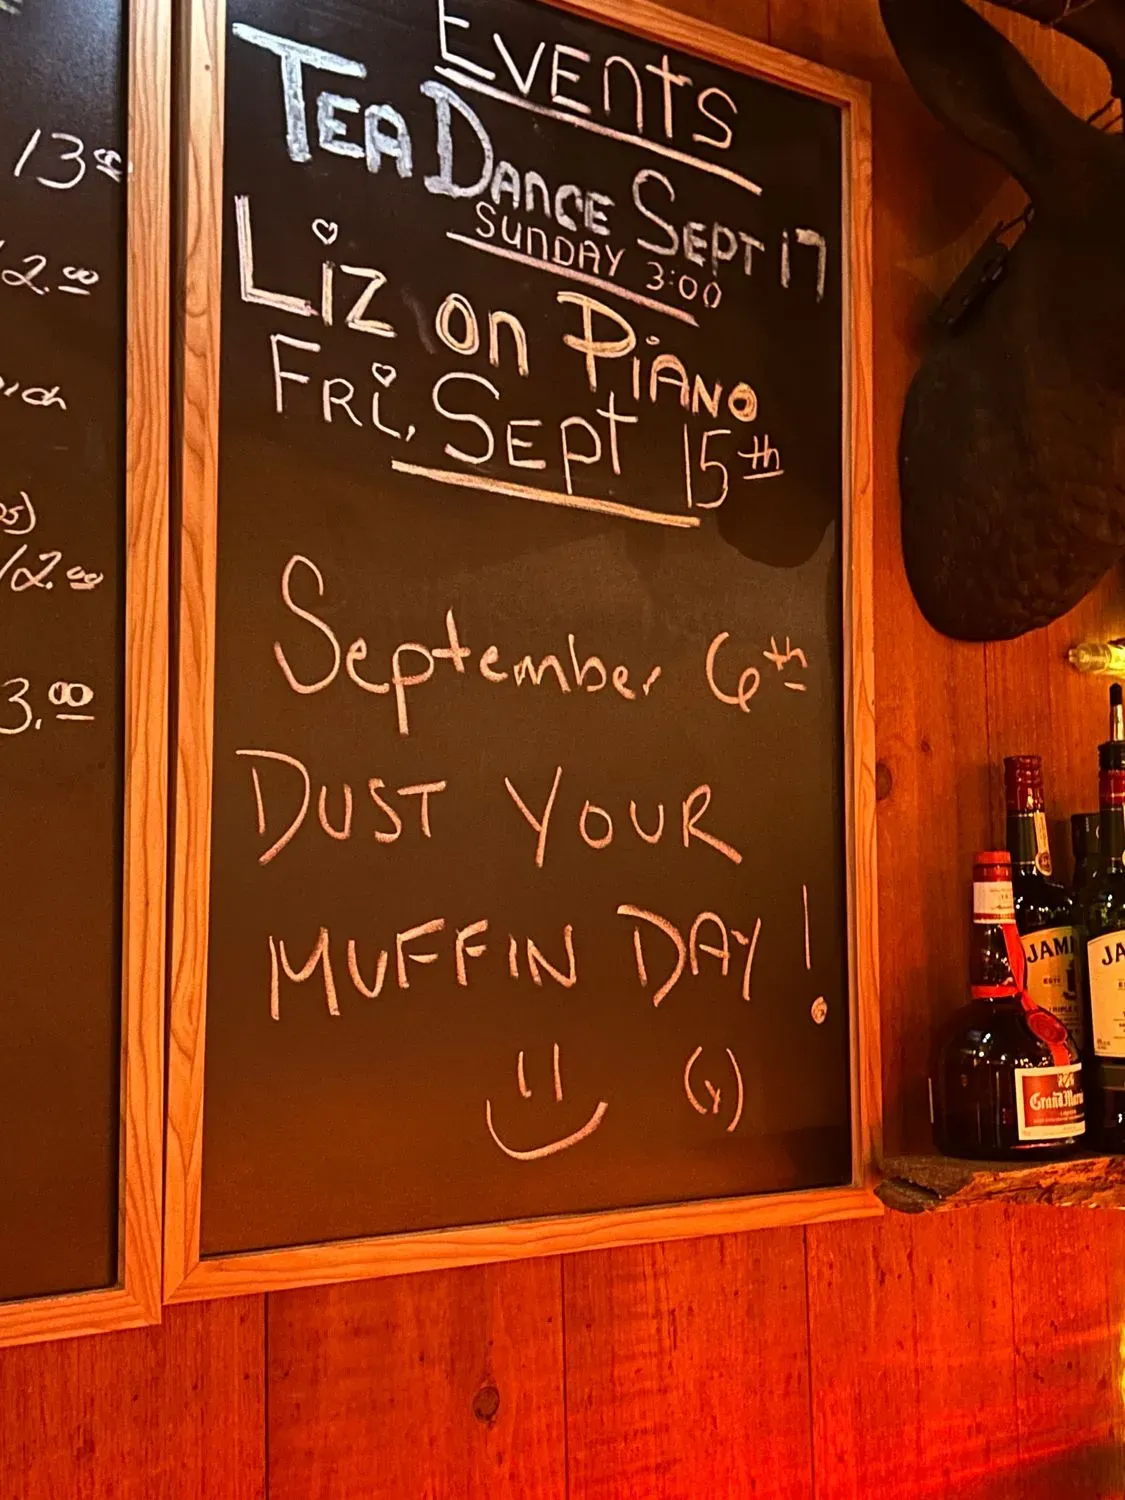 Events
Tea Dance Sept 17
Sunday 3:00
Liz on Piano
Fri, Sept 15th
September 6th
DUST YOUR
MUFFIN DAY!
(Y)
13.00
12.00
12.00
3.00
JAM
JA
Grand Marn